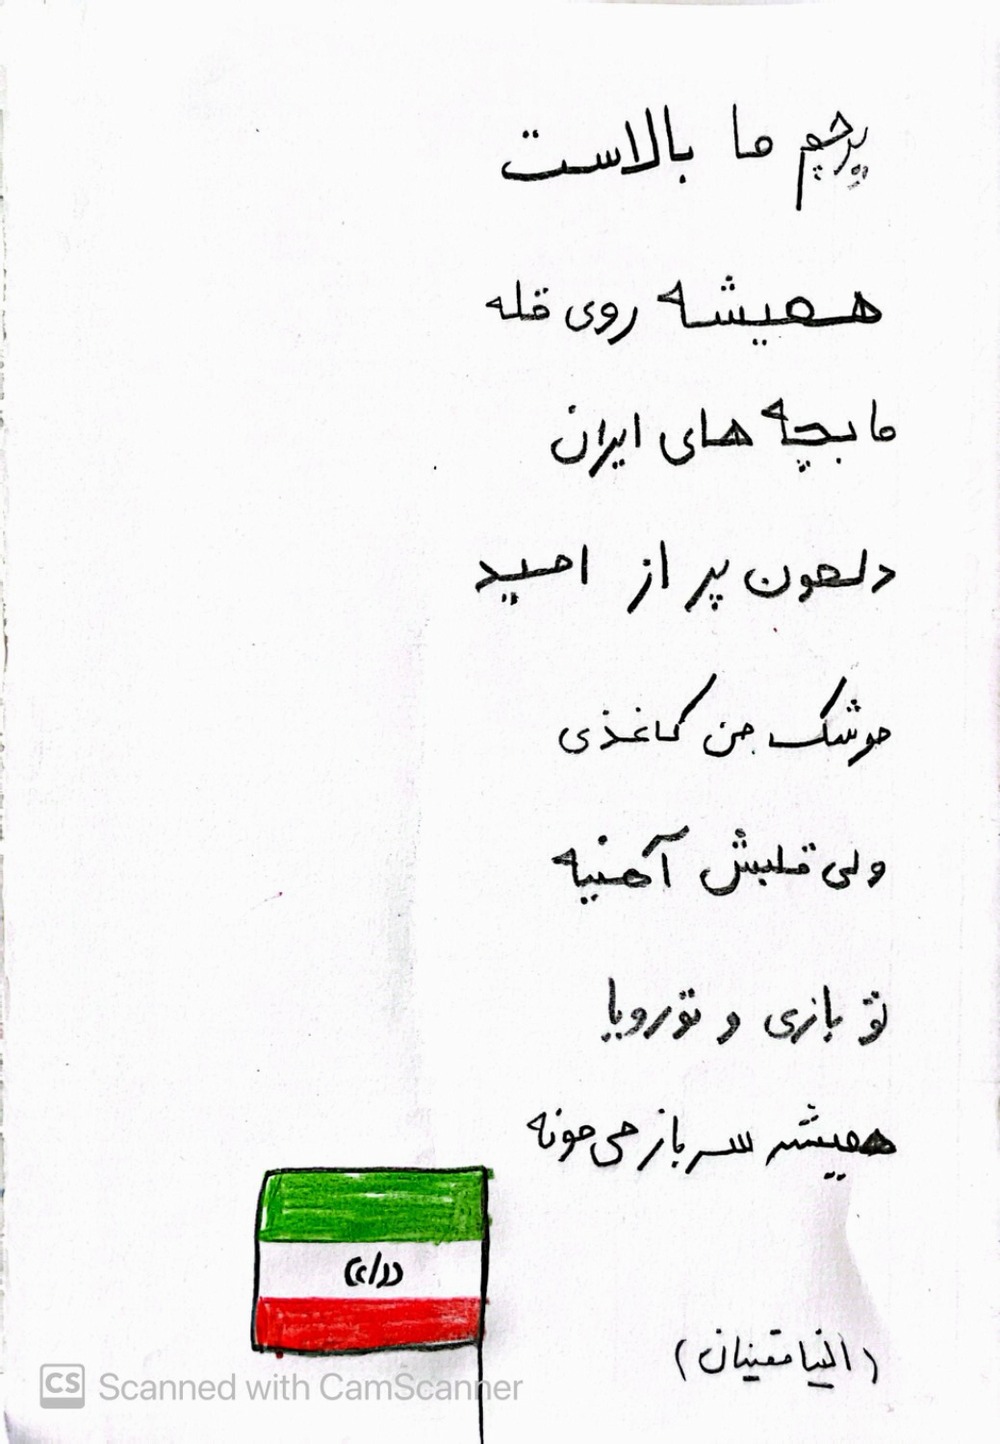 پرچم ما بالاست
همیشه روی قله
ما بچه های ایران
دلمون پر از امید
موشک من کاغذی
ولی قلبش آهنیه
تو بازی و تو رویا
همیشه سرباز می مونه
Scanned with CamScanner
CS